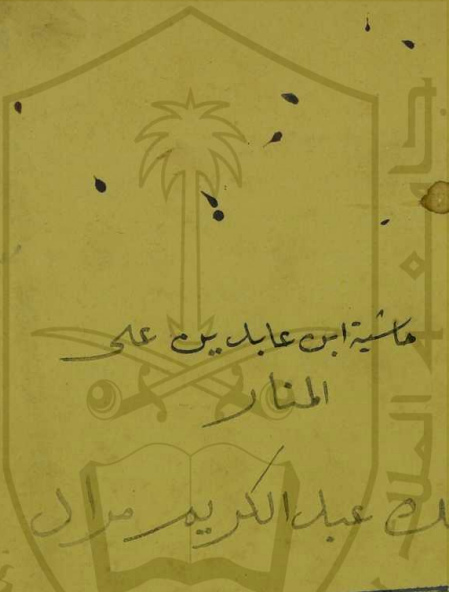 حاشية ابن عابدين على
المنار
ملك عبد الكريم مراد